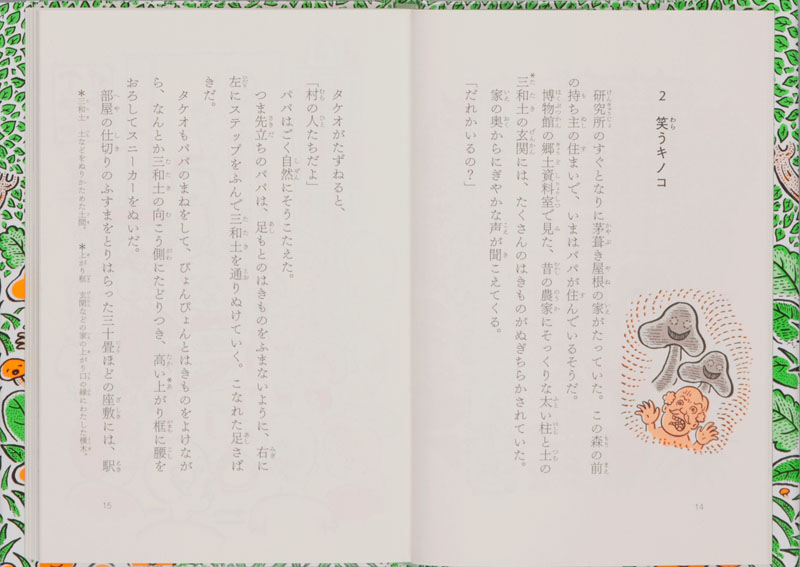 2 笑うキノコ
研究所のすぐとなりに茅葺き屋根の家がたっていた。この森の前
の持ち主の住まいで、いまはパパが住んでいるそうだ。
博物館の郷土資料室で見た、昔の農家にそっくりな太い柱と土の
三和土の玄関には、たくさんのはきものがぬぎちらかされていた。
家の奥からにぎやかな声が聞こえてくる。
「だれかいるの？」
14
タケオがたずねると、
「村の人たちだよ」
パパはごく自然にそうこたえた。
つま先立ちのパパは、足もとのはきものをふまないように、右に
左にステップをふんで三和土を通りぬけていく。こなれた足さば
きだ。
タケオもパパのまねをして、ぴょんぴょんとはきものをよけなが
ら、なんとか三和土の向こう側にたどりつき、高い上がり框に腰を
おろしてスニーカーをぬいだ。
部屋の仕切りのふすまをとりはらった三十畳ほどの座敷には、駅
＊三和土　土などをぬりかためた土間。　＊上がり框　玄関などの家の上がり口の縁にわたした横木。
15